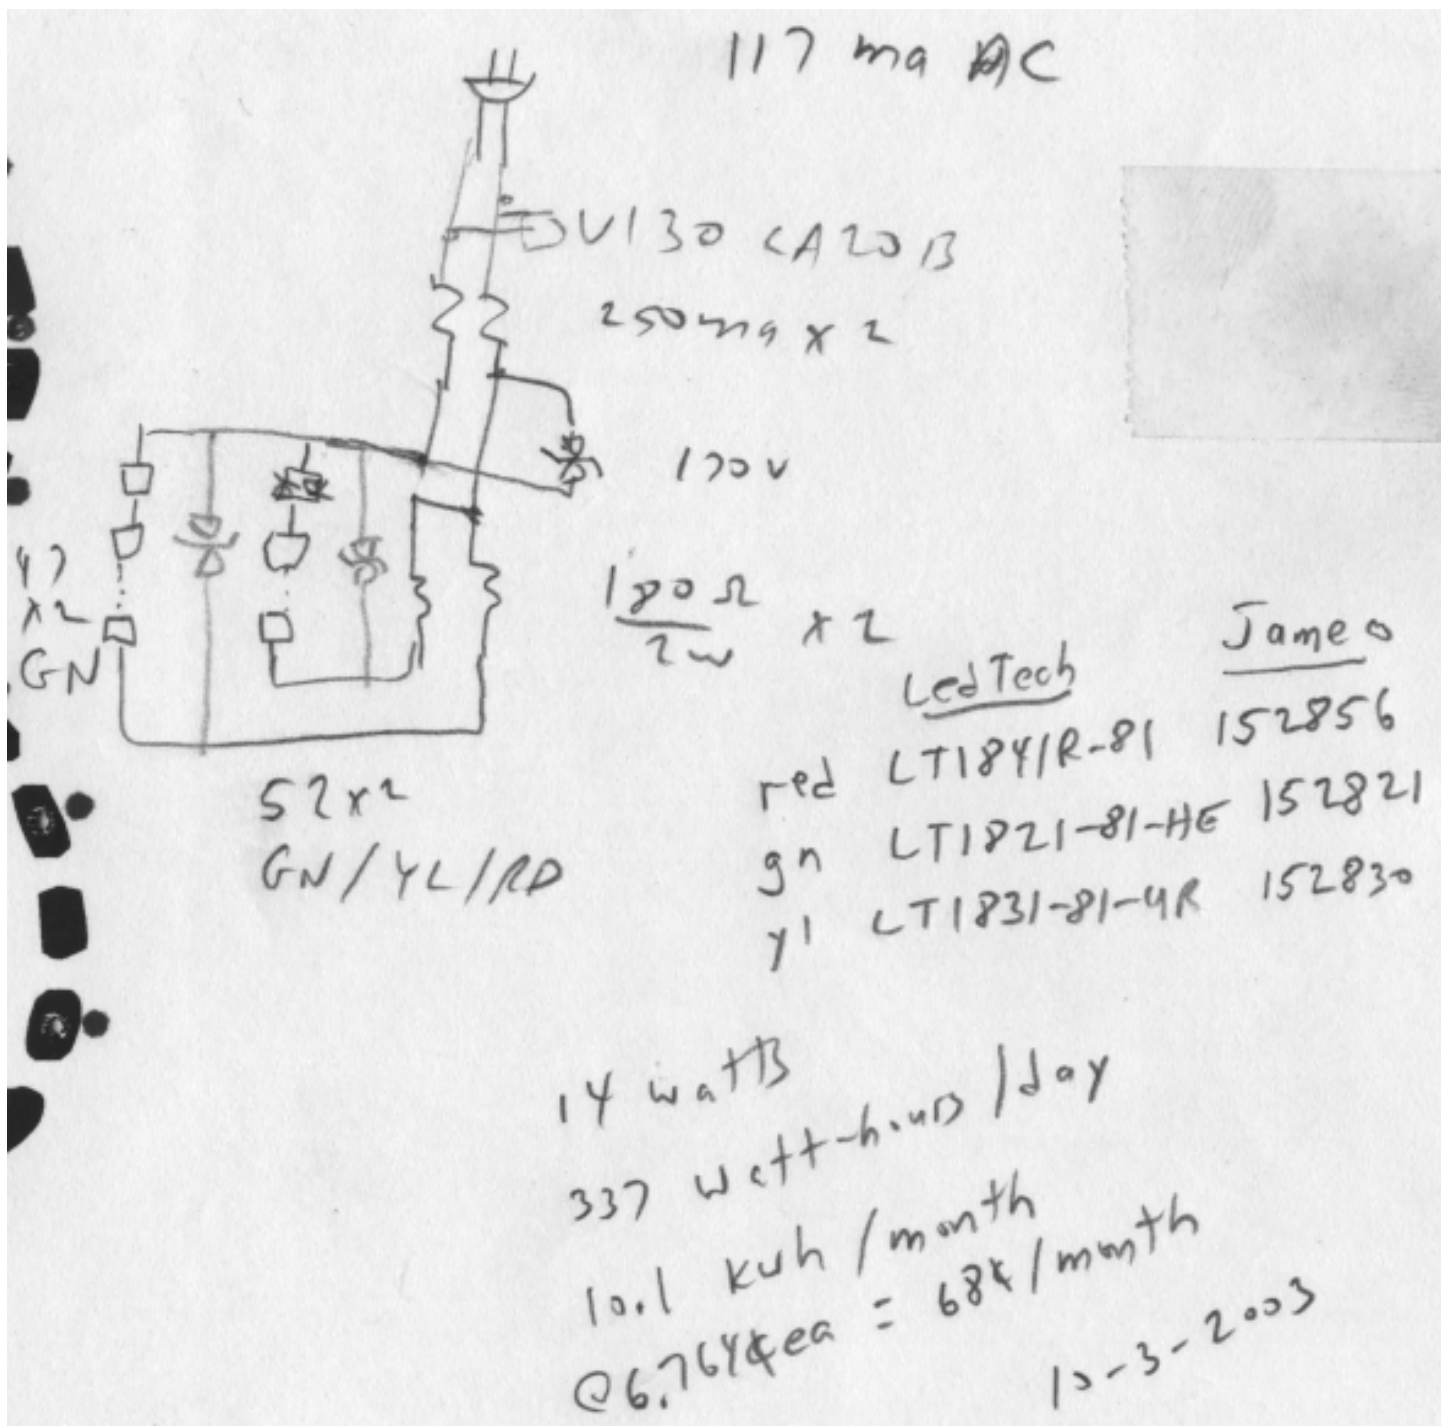 117 ma AC
V130 LA20B
250ma x 2
170v
47
x2
GN
180Ω
2w
x 2
52x2
GN/YL/RD
LedTech Jameco
red LT1841R-81 152856
gn LT1821-81-HE 152821
yl LT1831-81-UR 152830
14 watts
337 watt-hours/day
10.1 kwh/month
@6.764¢ea = 68¢/month
10-3-2003